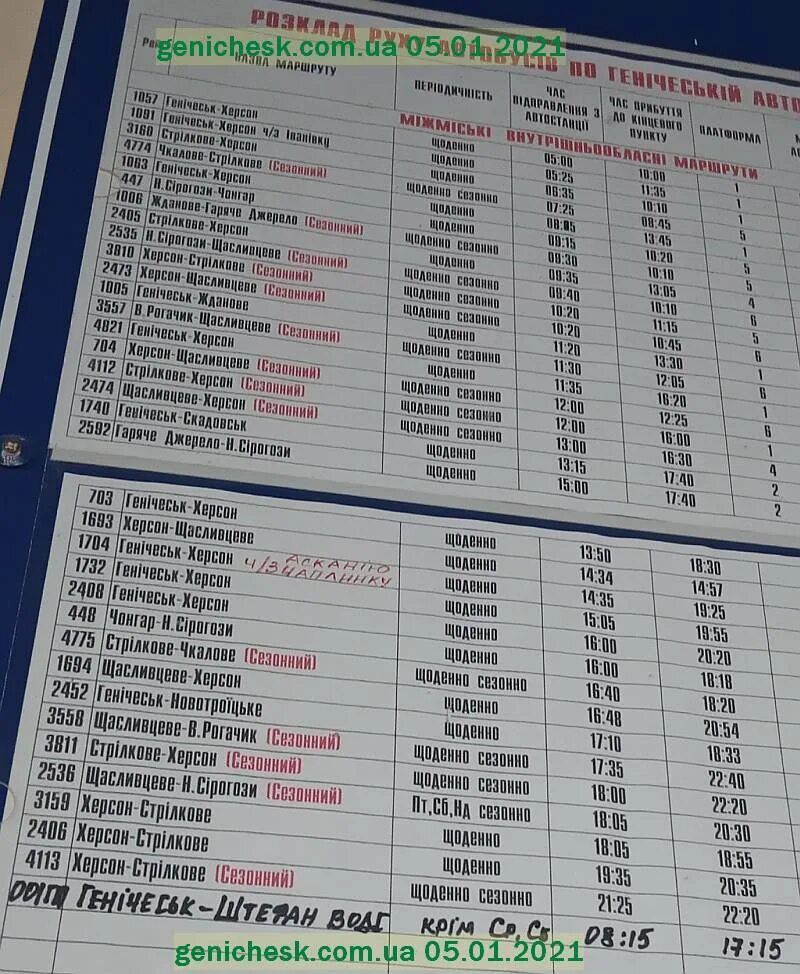 РОЗКЛАД РУХУ АВТОБУСІВ ПО ГЕНІЧЕСЬКІЙ АВТО
genichesk.com.ua 05.01.2021
НАЗВА МАРШРУТУ ПЕРІОДИЧНІСТЬ ЧАС ВІДПРАВЛЕННЯ З АВТОСТАНЦІЇ ЧАС ПРИБУТТЯ ДО КІНЦЕВОГО ПУНКТУ ПЛАТФОРМА
МІЖМІСЬКІ ВНУТРІШНЬООБЛАСНІ МАРШРУТИ
1057 Генічеськ-Херсон щоденно 05:00 10:00 1
1081 Генічеськ-Херсон ч/з Іванівку щоденно 05:25 11:35 1
3160 Стрілкове-Херсон щоденно 06:35 10:10 1
4774 Чкалове-Стрілкове (Сезонний) щоденно сезонно 07:25 08:45 5
1063 Генічеськ-Херсон щоденно 08:05 13:45 1
447 Н.Сірогози-Чонгар щоденно 09:15 10:20 5
1006 Жданове-Гаряче Джерело (Сезонний) щоденно сезонно 09:30 10:10 5
2405 Стрілкове-Херсон щоденно 09:35 13:05 4
2535 Н.Сірогози-Щасливцеве (Сезонний) щоденно сезонно 09:40 10:10 6
3810 Херсон-Стрілкове (Сезонний) щоденно сезонно 10:20 11:15 5
2473 Херсон-Щасливцеве (Сезонний) щоденно сезонно 10:20 10:45 6
1005 Генічеськ-Жданове щоденно 11:20 13:30 1
3557 В.Рогачик-Щасливцеве (Сезонний) щоденно сезонно 11:30 12:05 6
4821 Генічеськ-Херсон щоденно 11:35 16:20 1
704 Херсон-Щасливцеве (Сезонний) щоденно сезонно 12:00 12:25 6
4112 Стрілкове-Херсон (Сезонний) щоденно сезонно 12:00 16:00 1
2474 Щасливцеве-Херсон (Сезонний) щоденно сезонно 13:00 16:30 4
1740 Генічеськ-Скадовськ щоденно 13:15 17:40 2
2592 Гаряче Джерело-Н.Сірогози щоденно 15:00 17:40 2
703 Генічеськ-Херсон щоденно 13:50 18:30
1693 Херсон-Щасливцеве щоденно 14:34 14:57
1704 Генічеськ-Херсон ч/з АСКАНІЮ ЧАПЛИНКУ щоденно 14:35 19:25
1732 Генічеськ-Херсон щоденно 15:05 19:55
2408 Генічеськ-Херсон щоденно 16:00 20:20
448 Чонгар-Н.Сірогози щоденно 16:00 18:18
4775 Стрілкове-Чкалове (Сезонний) щоденно сезонно 16:40 18:20
1694 Щасливцеве-Херсон щоденно 16:48 20:54
2452 Генічеськ-Новотроїцьке щоденно 17:10 18:33
3558 Щасливцеве-В.Рогачик (Сезонний) щоденно сезонно 17:35 22:40
3811 Стрілкове-Херсон (Сезонний) щоденно сезонно 18:00 22:20
2536 Щасливцеве-Н.Сірогози (Сезонний) Пт,Сб,Нд сезонно 18:05 20:30
3159 Херсон-Стрілкове щоденно 18:05 18:55
2406 Херсон-Стрілкове щоденно 19:35 20:35
4113 Херсон-Стрілкове (Сезонний) щоденно сезонно 21:25 22:20
ГЕНІЧЕСЬК-ШТЕФАН ВОДЕ КРІМ Ср, Сб 08:15 17:15
genichesk.com.ua 05.01.2021